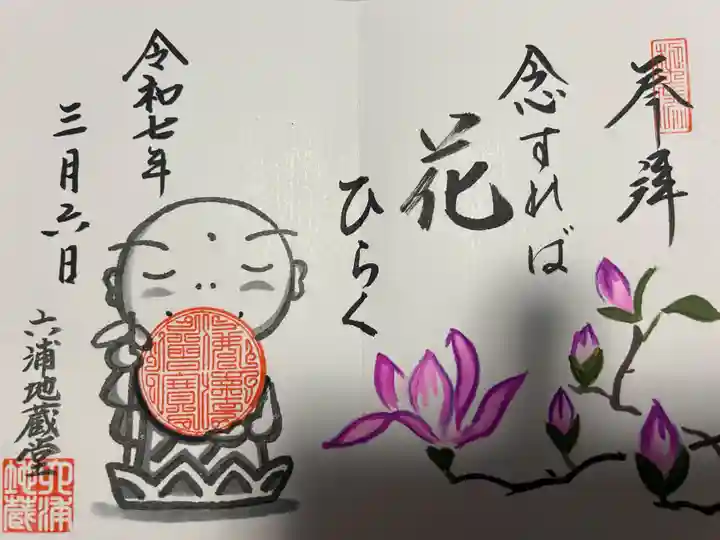 奉拝
念ずれば
花
ひらく
令和七年
三月六日
六浦地蔵堂
六浦地蔵